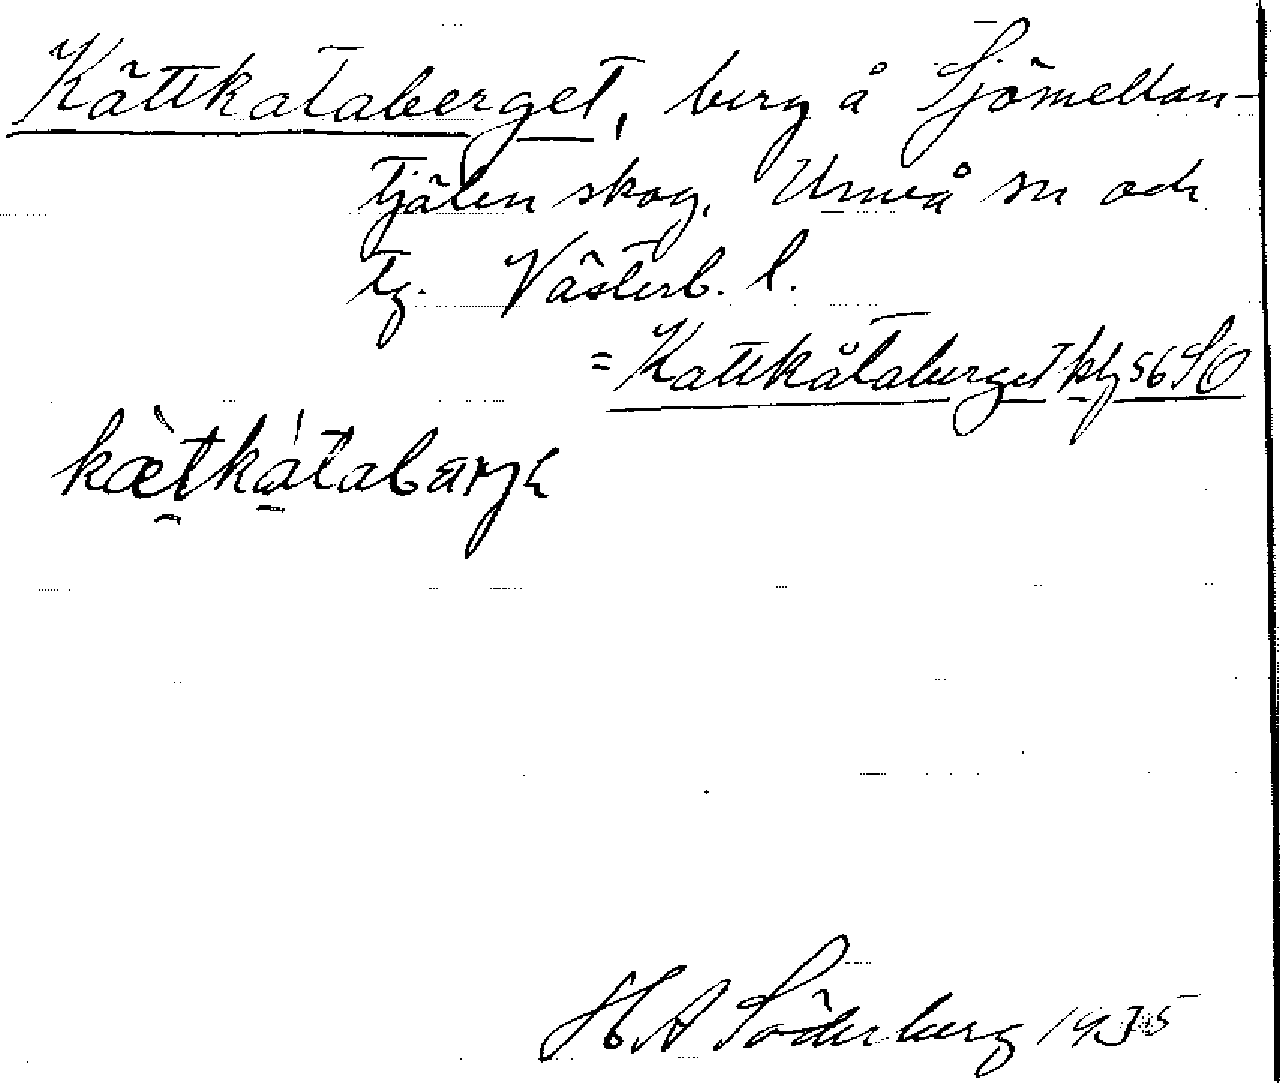 Kättkataberget, berg å Sjömellan-
tjälen skog, Umeå sn och
tg. Västerb. l.
= Kattkåtaberget kbl 56 SO
kæ̀tkátabærjɛ
H A Söderberg 1935